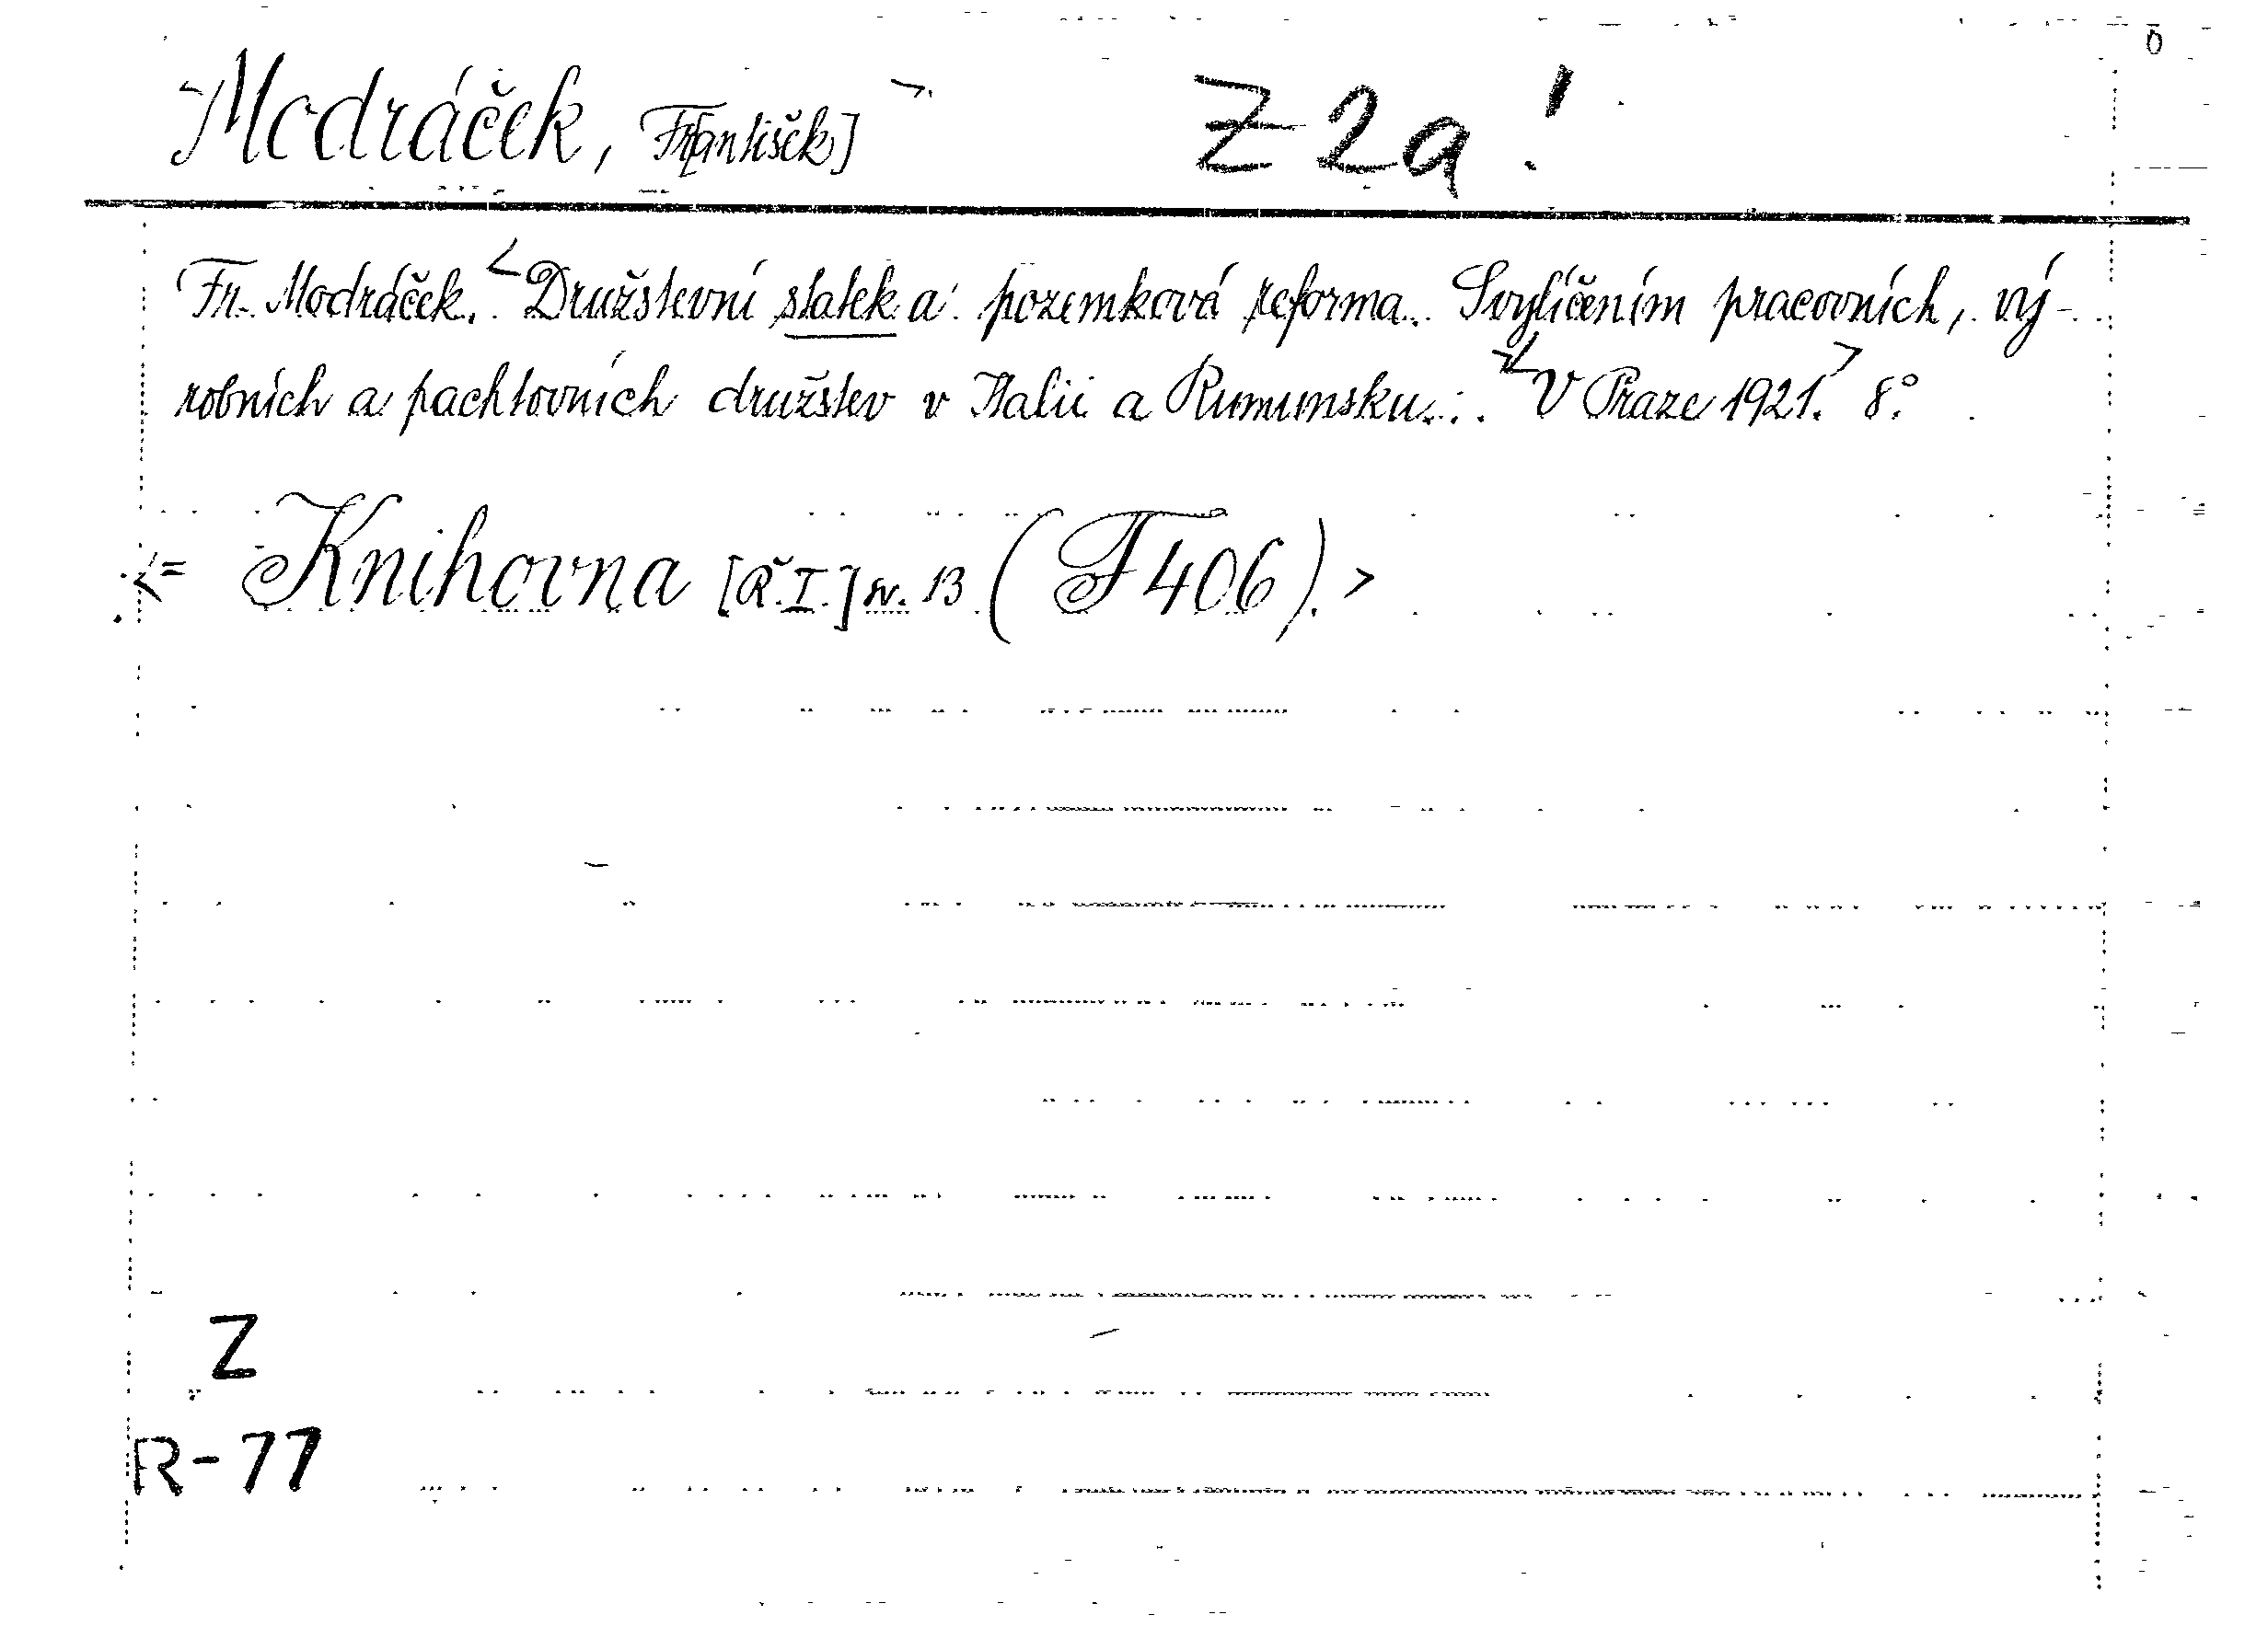 <Modráček, Fr[antišek]>. Z 2a!
Fr. Modráček. <Družstevní statek a pozemková reforma. S vylíčením pracovních, vý-
robních a pachtovních družstev v Italii a Rumunsku... ><V Praze 1921.> 8°.
<= Knihovna [Ř. I.] sv. 13 (F 406).>
Z
R-77